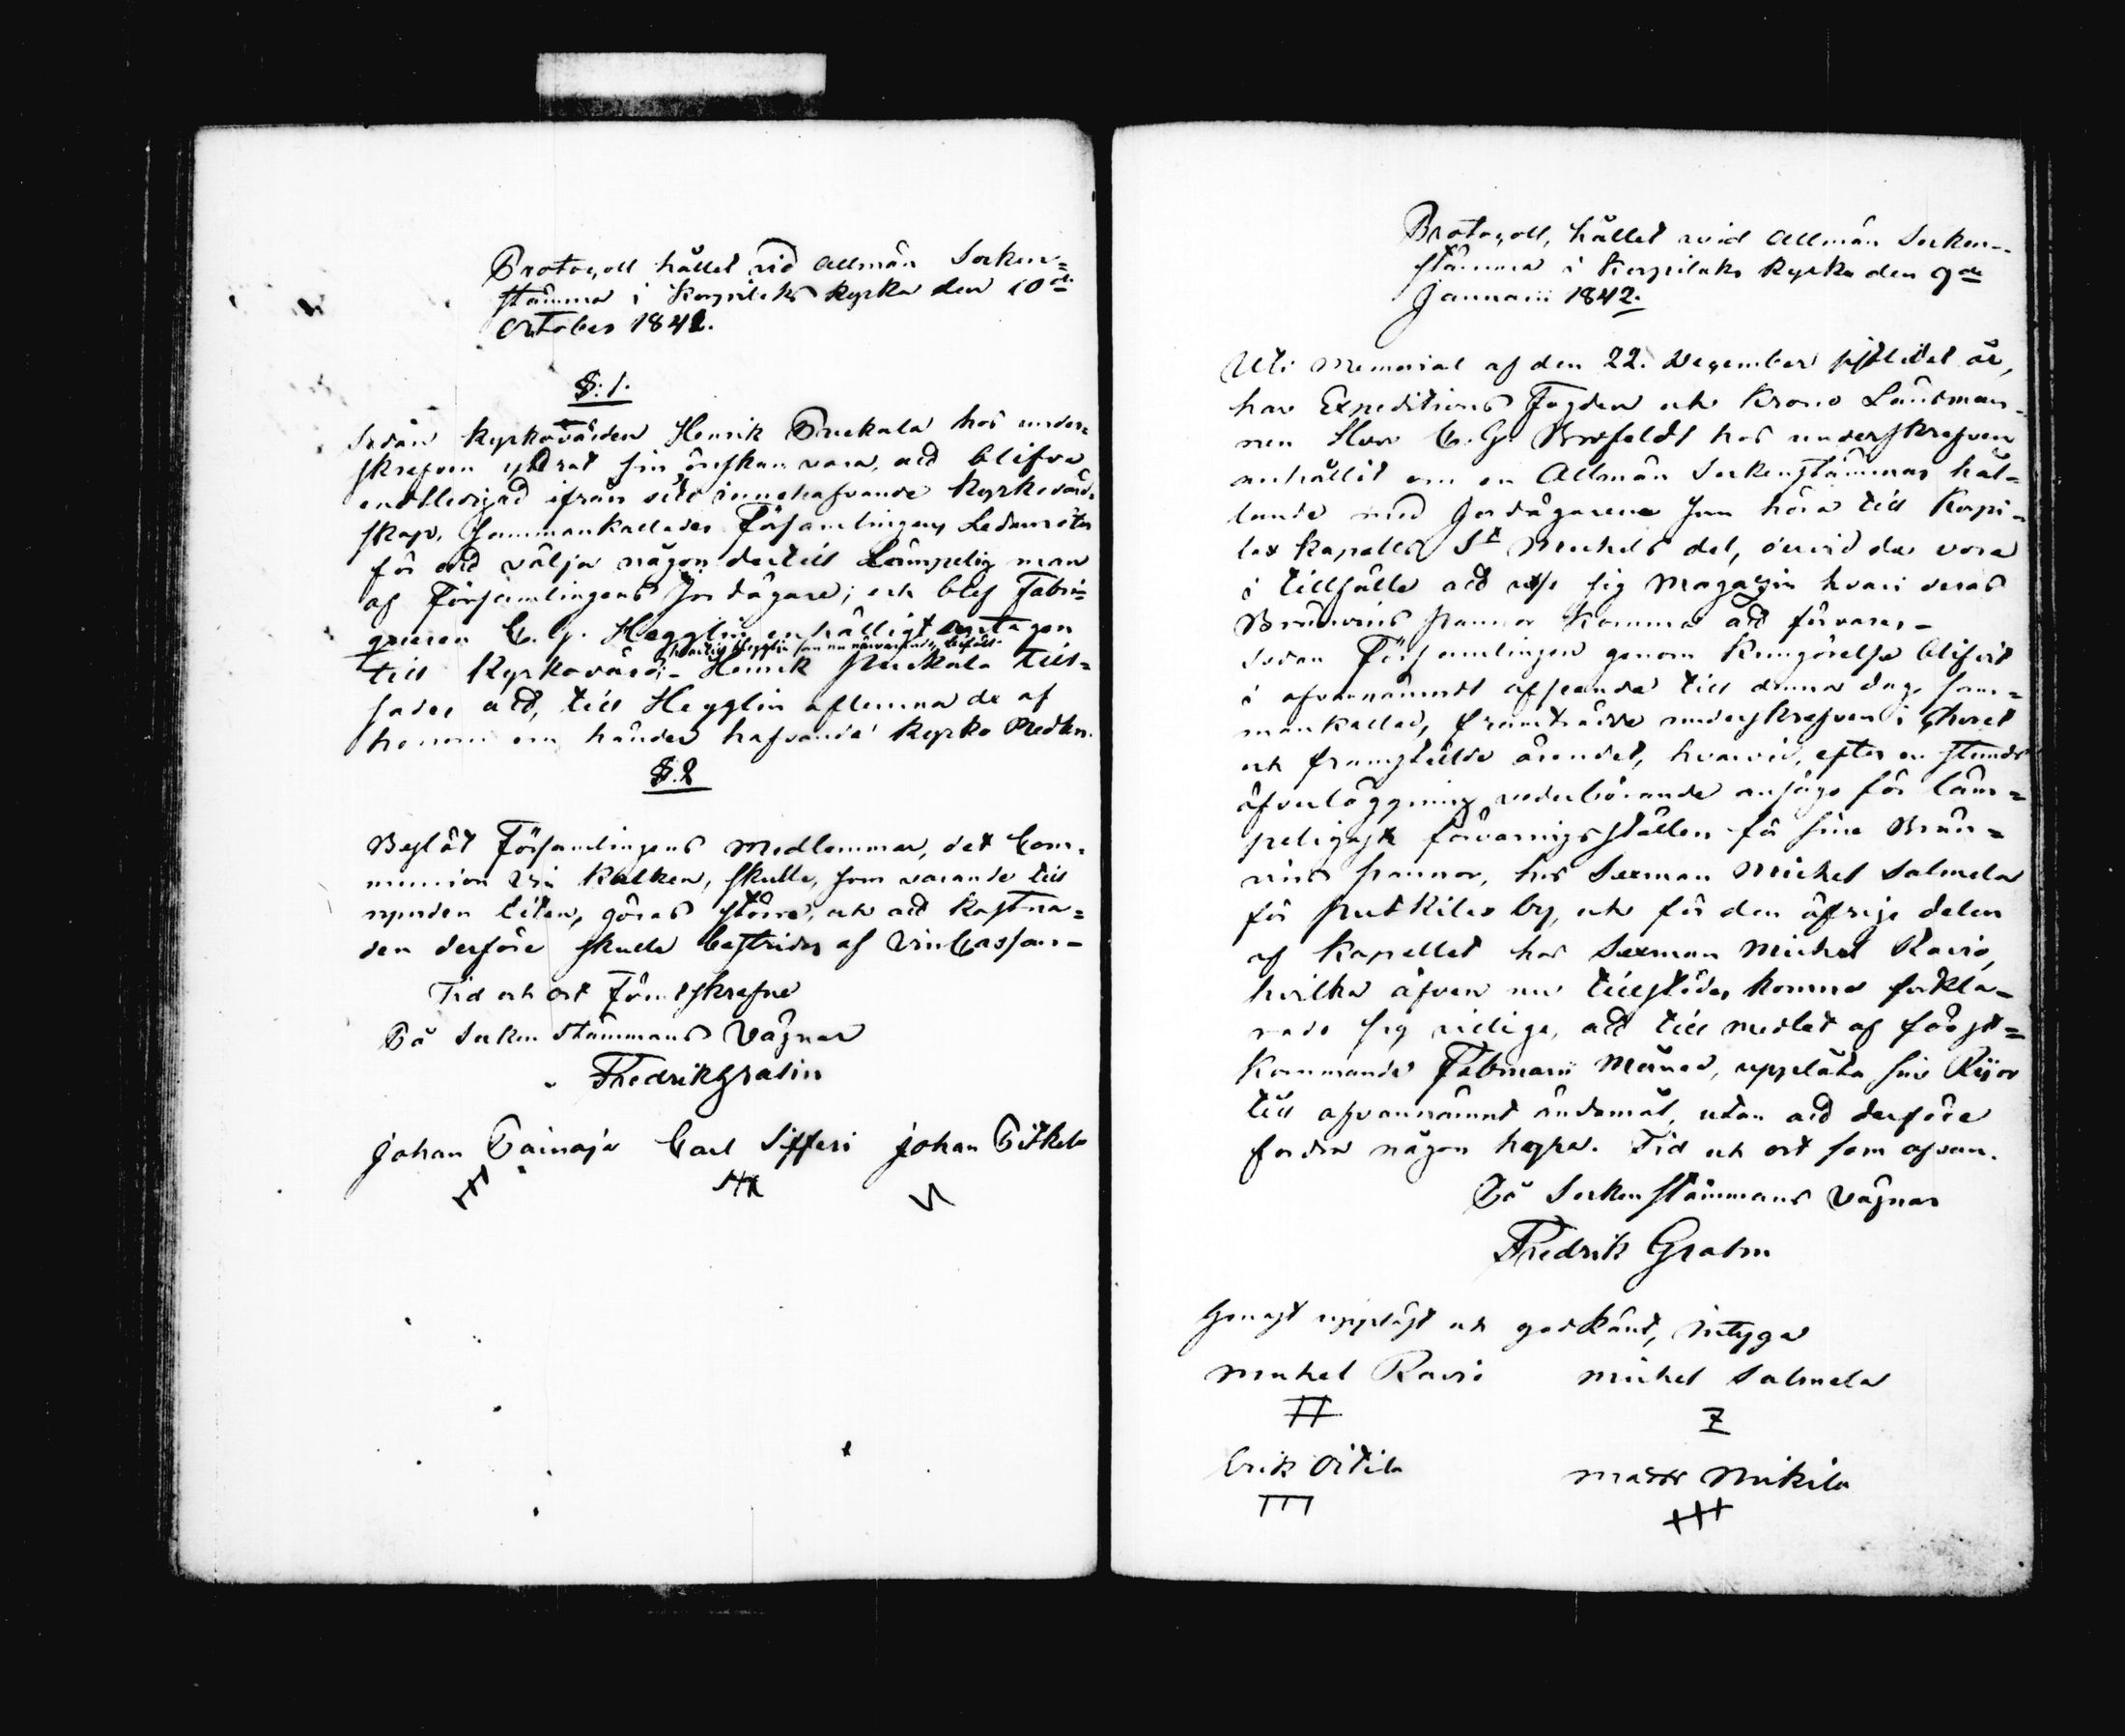 Protocoll hållet vid Allmän Socken=
stämma i Korpilaks kyrka den 10de
October 1841.
§. 1.
Sedan Kyrkovärden Henrik Puckala hos under-
skrefven yttrat sin önskan vara, att blifva
entledigad ifrån sitt innehafvande Kyrkovärd-
skap, Sammankallades Församlingens Ledamöter
för att välja någon dertill Lämpelig man
af Församlingens Jordägare; och blef Fabri-
queuren C. G. Hegglin enhälligt antagen
hvartill Hegglin som nu närvarande biföll
till Kyrkovärd. Henrik Puckala till=
sades att, till Hegglin aflemna de af
honom om händer hafvande Kyrko Medlen.
§. 2
Beslöt Församlingens Medlemmar, det Com-
munion Vin Kalken, skulle, som varande till
rymden liten, göras större, och att kostna=
den derföre skulle bestridas af VinCassan-
Tid och ort Förutskrefne
På Socken Stämmans Vägnar
Fredrik Grahn
Johan Painaja Carl Sifferi Johan Pitkelä
Protocoll, hållet vid Allmän Socken-
stämma i Korpilaks Kyrka den 9de
Januarii 1842.
Uti Memorial af den 22. December sistlidet år,
har Expeditions Fogden och Krono Länsman-
nen Herr C. G. Brofeldt hos underskrefven
anhållit om en Allmän Sockenstämmas hål=
lande med Jordägarene som höra till Korpi-
lax Kapells St Michels del, derwid de vore
i tillfälle att utse sig Magazin hvari deras
Bränvins pannor komma att förvaras-
Sedan Församlingen genom Kungörelse blifvit
i ofvannämndt afseende till denna dag, sam=
mankallad, framträdde underskrefven i choret
och framstälde ärendet, hvarvid, efter en stunds
öfverläggning vederbörande ansågo för läm=
peligast förvarnigsställen för sine Brän=
vins pannor, hos Sexman Michel Salmela
för Putkilax by, och för den öfrige delen
af Kapellet hos Sexman Michel Ravio,
hvilka äfven nu tillstädes komne förkla-
rade sig villige, att till medlet af först=
kommande Februarii Månad, upplåta sine Rijor
till ofvannämnt ändamål, utan att derföre
fordra någon hyra. Tid och ort som ofvan.
På Sockenstämmans Vägnar
Fredrik Grahn
Genast uppläst och godkänt, intyga
Michel Ravio Michel Salmela
Erik Oitila Matts Mikila